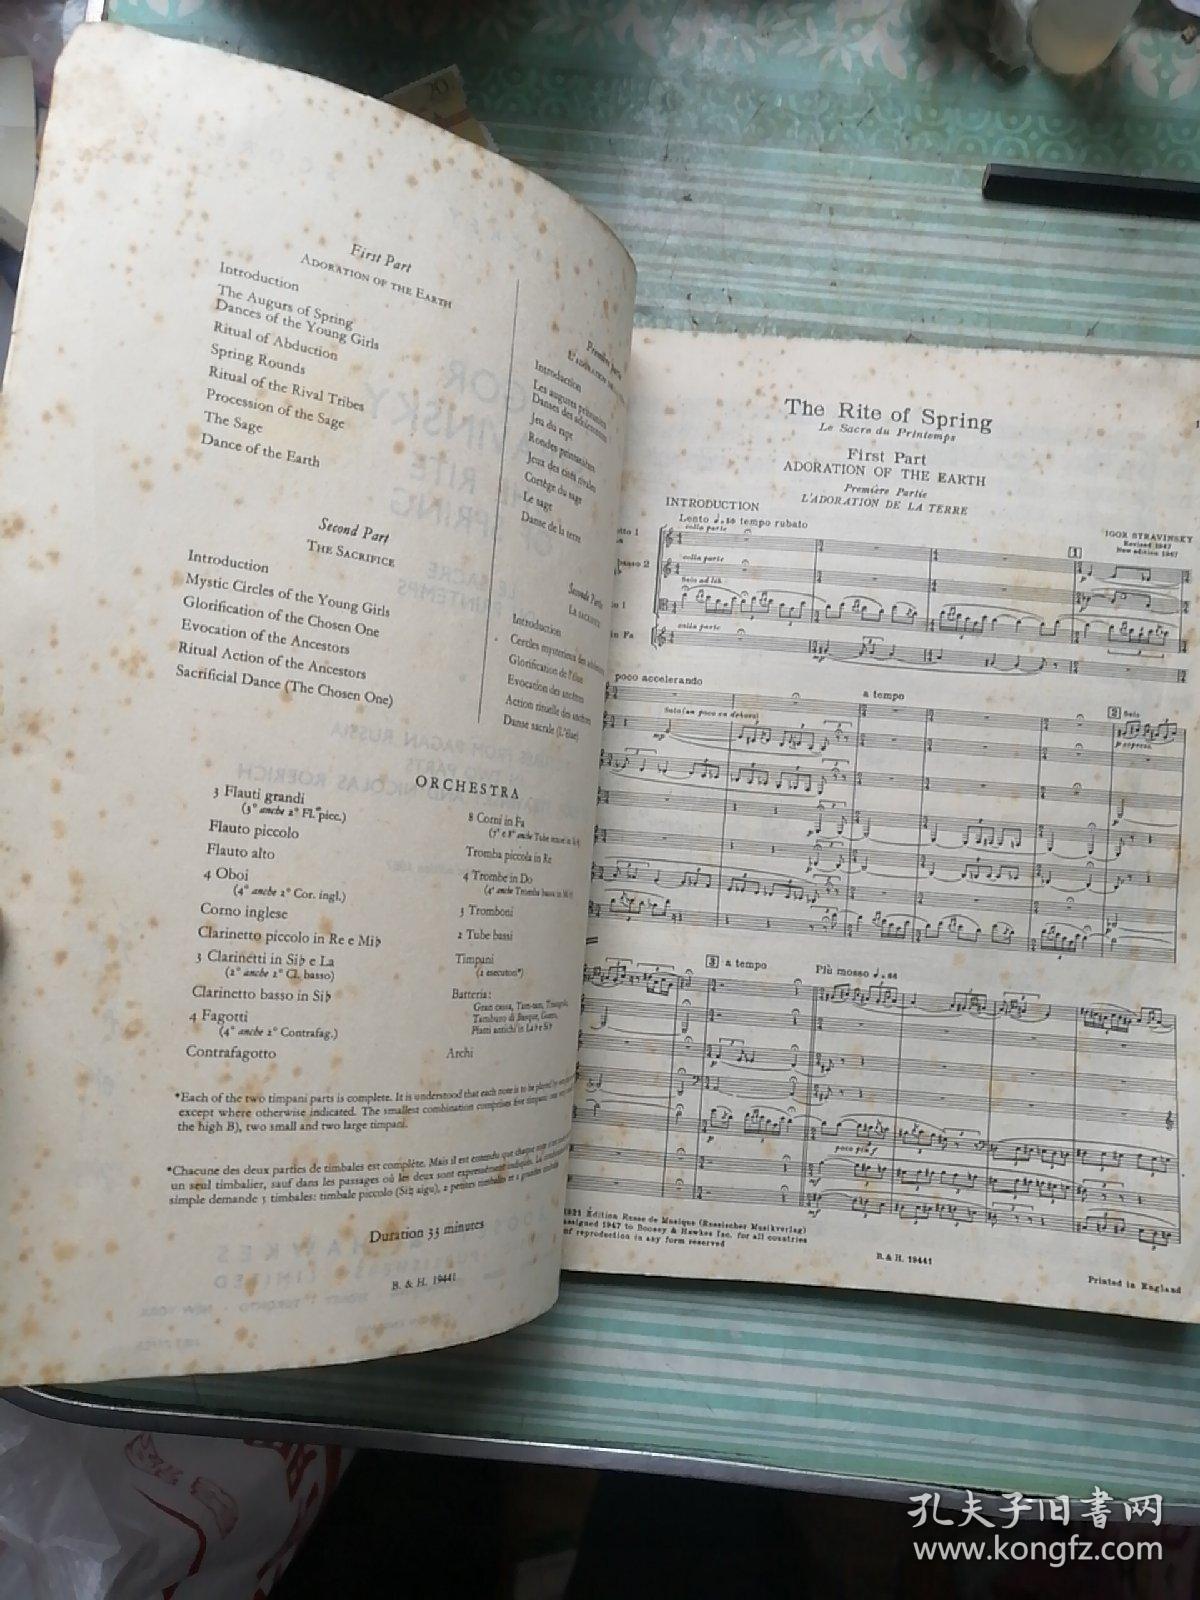 First Part
ADORATION OF THE EARTH
Introduction
The Augurs of Spring
Dances of the Young Girls
Ritual of Abduction
Spring Rounds
Ritual of the Rival Tribes
Procession of the Sage
The Sage
Dance of the Earth
Second Part
THE SACRIFICE
Introduction
Mystic Circles of the Young Girls
Glorification of the Chosen One
Evocation of the Ancestors
Ritual Action of the Ancestors
Sacrificial Dance (The Chosen One)
Première partie
L'ADORATION
Introduction
Les augures printaniers
Danses des adolescentes
Jeu du rapt
Rondes printanières
Jeux des cités rivales
Cortège du sage
Le sage
Danse de la terre
Seconde Partie
LE SACRIFICE
Introduction
Cercles mystérieux des
Glorification de l'élue
Evocation des ancêtres
Action rituelle des ancêtres
Danse sacrale (L'élue)
ORCHESTRA
3 Flauti grandi
(3° anche 2° Fl. picc.)
Flauto piccolo
Flauto alto
4 Oboi
(4° anche 2° Cor. ingl.)
Corno inglese
Clarinetto piccolo in Re e Mi♭
3 Clarinetti in Si♭ e La
(2° anche 2° Cl. basso)
Clarinetto basso in Si♭
4 Fagotti
(4° anche 2° Contrafag.)
Contrafagotto
8 Corni in Fa
(7° e 8° anche Tube
Tromba piccola in Re
4 Trombe in Do
(4° anche Tromba bassa in
3 Tromboni
2 Tube bassi
Timpani
(2 esecutori*)
Batteria:
Gran cassa, Tam-tam, Triangolo,
Tamburo di Basque, Guero,
Piatti antichi in La♭ e Si♭
Archi
*Each of the two timpani parts is complete. It is understood that each note is to be played by
except where otherwise indicated. The smallest combination comprises five timpani: one
the high B), two small and two large timpani.
*Chacune des deux parties de timbales est complète. Mais il est entendu que chaque
un seul timbalier, sauf dans les passages où les deux sont expressément indiqués. La
simple demande 5 timbales: timbale piccolo (Si♮ aigu), 2 petites timbales et 2 grandes timbales
Duration 33 minutes
B. & H. 19441
1
The Rite of Spring
Le Sacre du Printemps
First Part
ADORATION OF THE EARTH
Première Partie
L'ADORATION DE LA TERRE
INTRODUCTION
IGOR STRAVINSKY
Revised 1947
New edition 1967
Lento ♩. 50 tempo rubato
colla parte
1
colla parte
Solo ad lib.
colla parte
in Fa
mp
poco accelerando
a tempo
2 Solo
Solo (un poco en dehors)
mp
p
3 a tempo
Più mosso ♩. 66
poco più f
1921 Édition Russe de Musique (Russischer Musikverlag)
assigned 1947 to Boosey & Hawkes Inc. for all countries
of reproduction in any form reserved
B. & H. 19441
Printed in England
孔夫子旧书网
www.kongfz.com